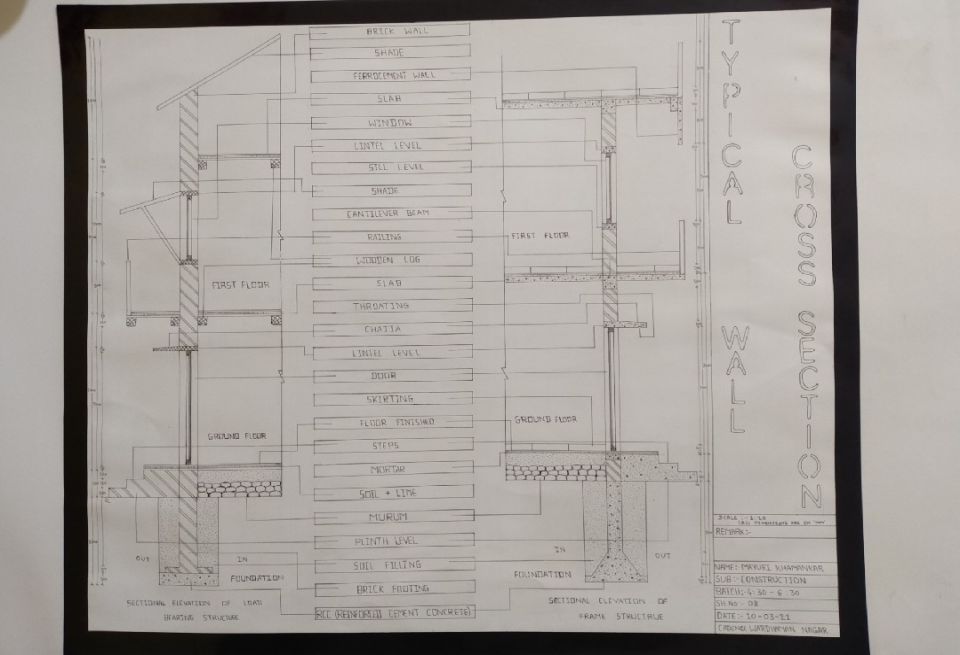 BRICK WALL
SHADE
FERROCEMENT WALL
SLAB
WINDOW
LINTEL LEVEL
SILL LEVEL
SHADE
CANTILEVER BEAM
RAILING
WOODEN LOG
SLAB
THROATING
CHAJJA
LINTEL LEVEL
DOOR
SKIRTING
FLOOR FINISHED
STEPS
MORTAR
SOIL + LIME
MURUM
PLINTH LEVEL
SOIL FILLING
BRICK FOOTING
RCC (REINFORCED CEMENT CONCRETE)
FIRST FLOOR
GROUND FLOOR
OUT
IN
FOUNDATION
SECTIONAL ELEVATION OF LOAD
BEARING STRUCTURE
FIRST FLOOR
GROUND FLOOR
IN
OUT
FOUNDATION
SECTIONAL ELEVATION OF
FRAME STRUCTRUE
TYPICAL WALL
CROSS SECTION
REMARK:-
NAME: MAYURI KHAMANKAR
SUB:- CONSTRUCTION
BATCH:- 4:30 - 6:30
SH NO:- 08
DATE:- 10-03-21
WARDHAMAN NAGAR